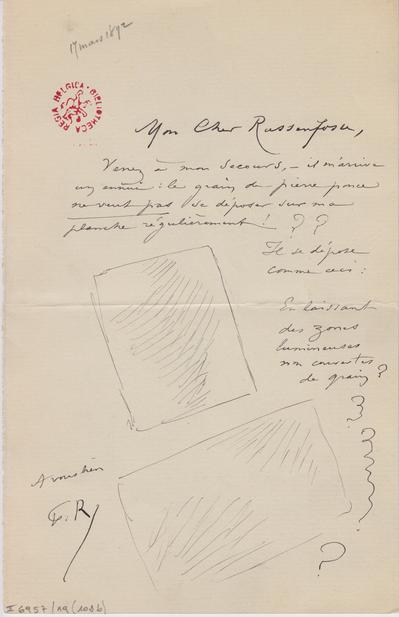 17 mars 1892
REGIA BELGICA BIBLIOTHECA
Mon Cher Rassenfosse,
Venez à mon secours, – il m'arrive
un ennui : le grain de pierre ponce
ne veut pas se déposer sur ma
planche régulièrement ! ? ?
Il se dépose
comme ceci :
En laissant
des zones
lumineuses
non couvertes
de grain ?
?
A vous bien
F. R
?
II 6957/19 (108b)